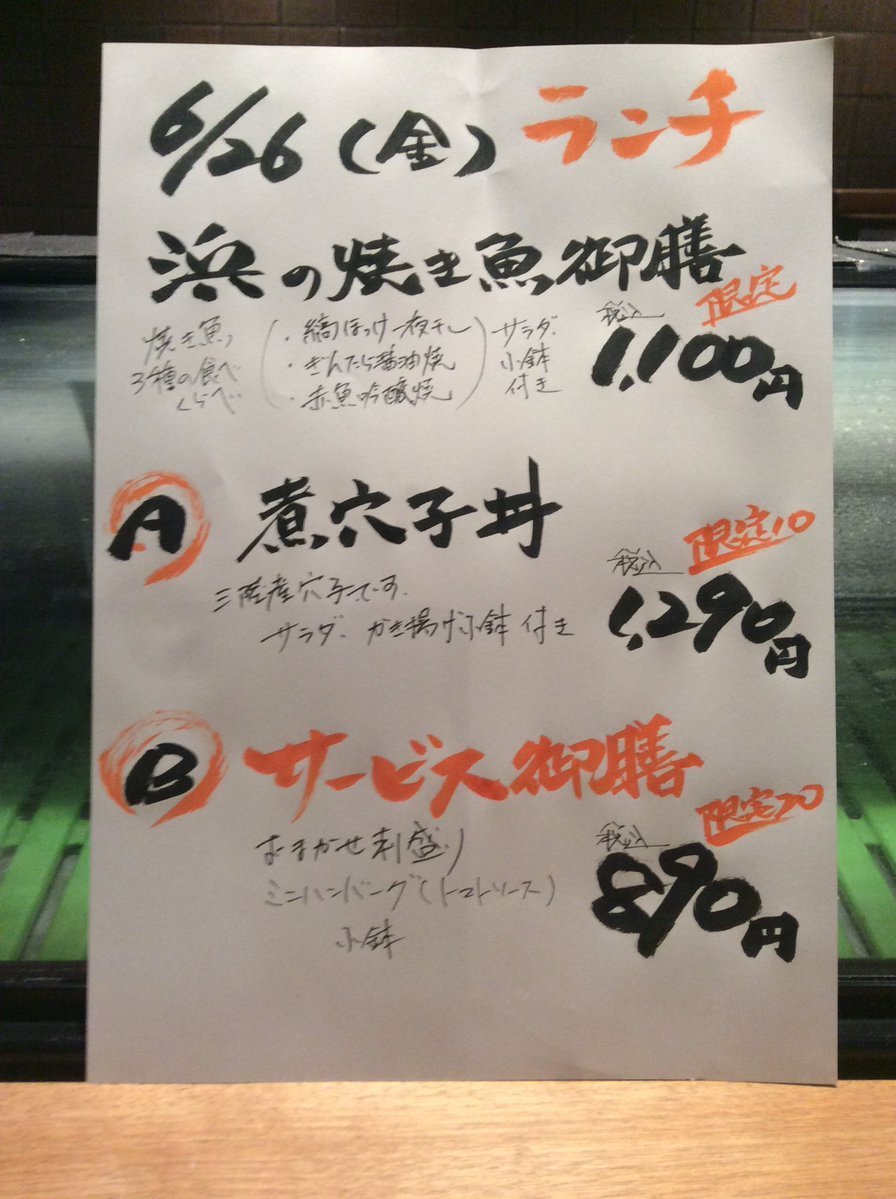 6/26(金) ランチ
浜の焼き魚御膳
限定
焼き魚
3種の食べ
くらべ
・縞ほっけ一夜干し
・ぎんだら醤油焼
・赤魚吟醸焼
サラダ
小鉢
付き
税込
1,100円
A 煮穴子丼
限定10
三陸産穴子です。
サラダ かき揚げ 小鉢 付き
税込
1,290円
B サービス御膳
限定20
おまかせ刺盛り
ミニハンバーグ(トマトソース)
小鉢
税込
890円